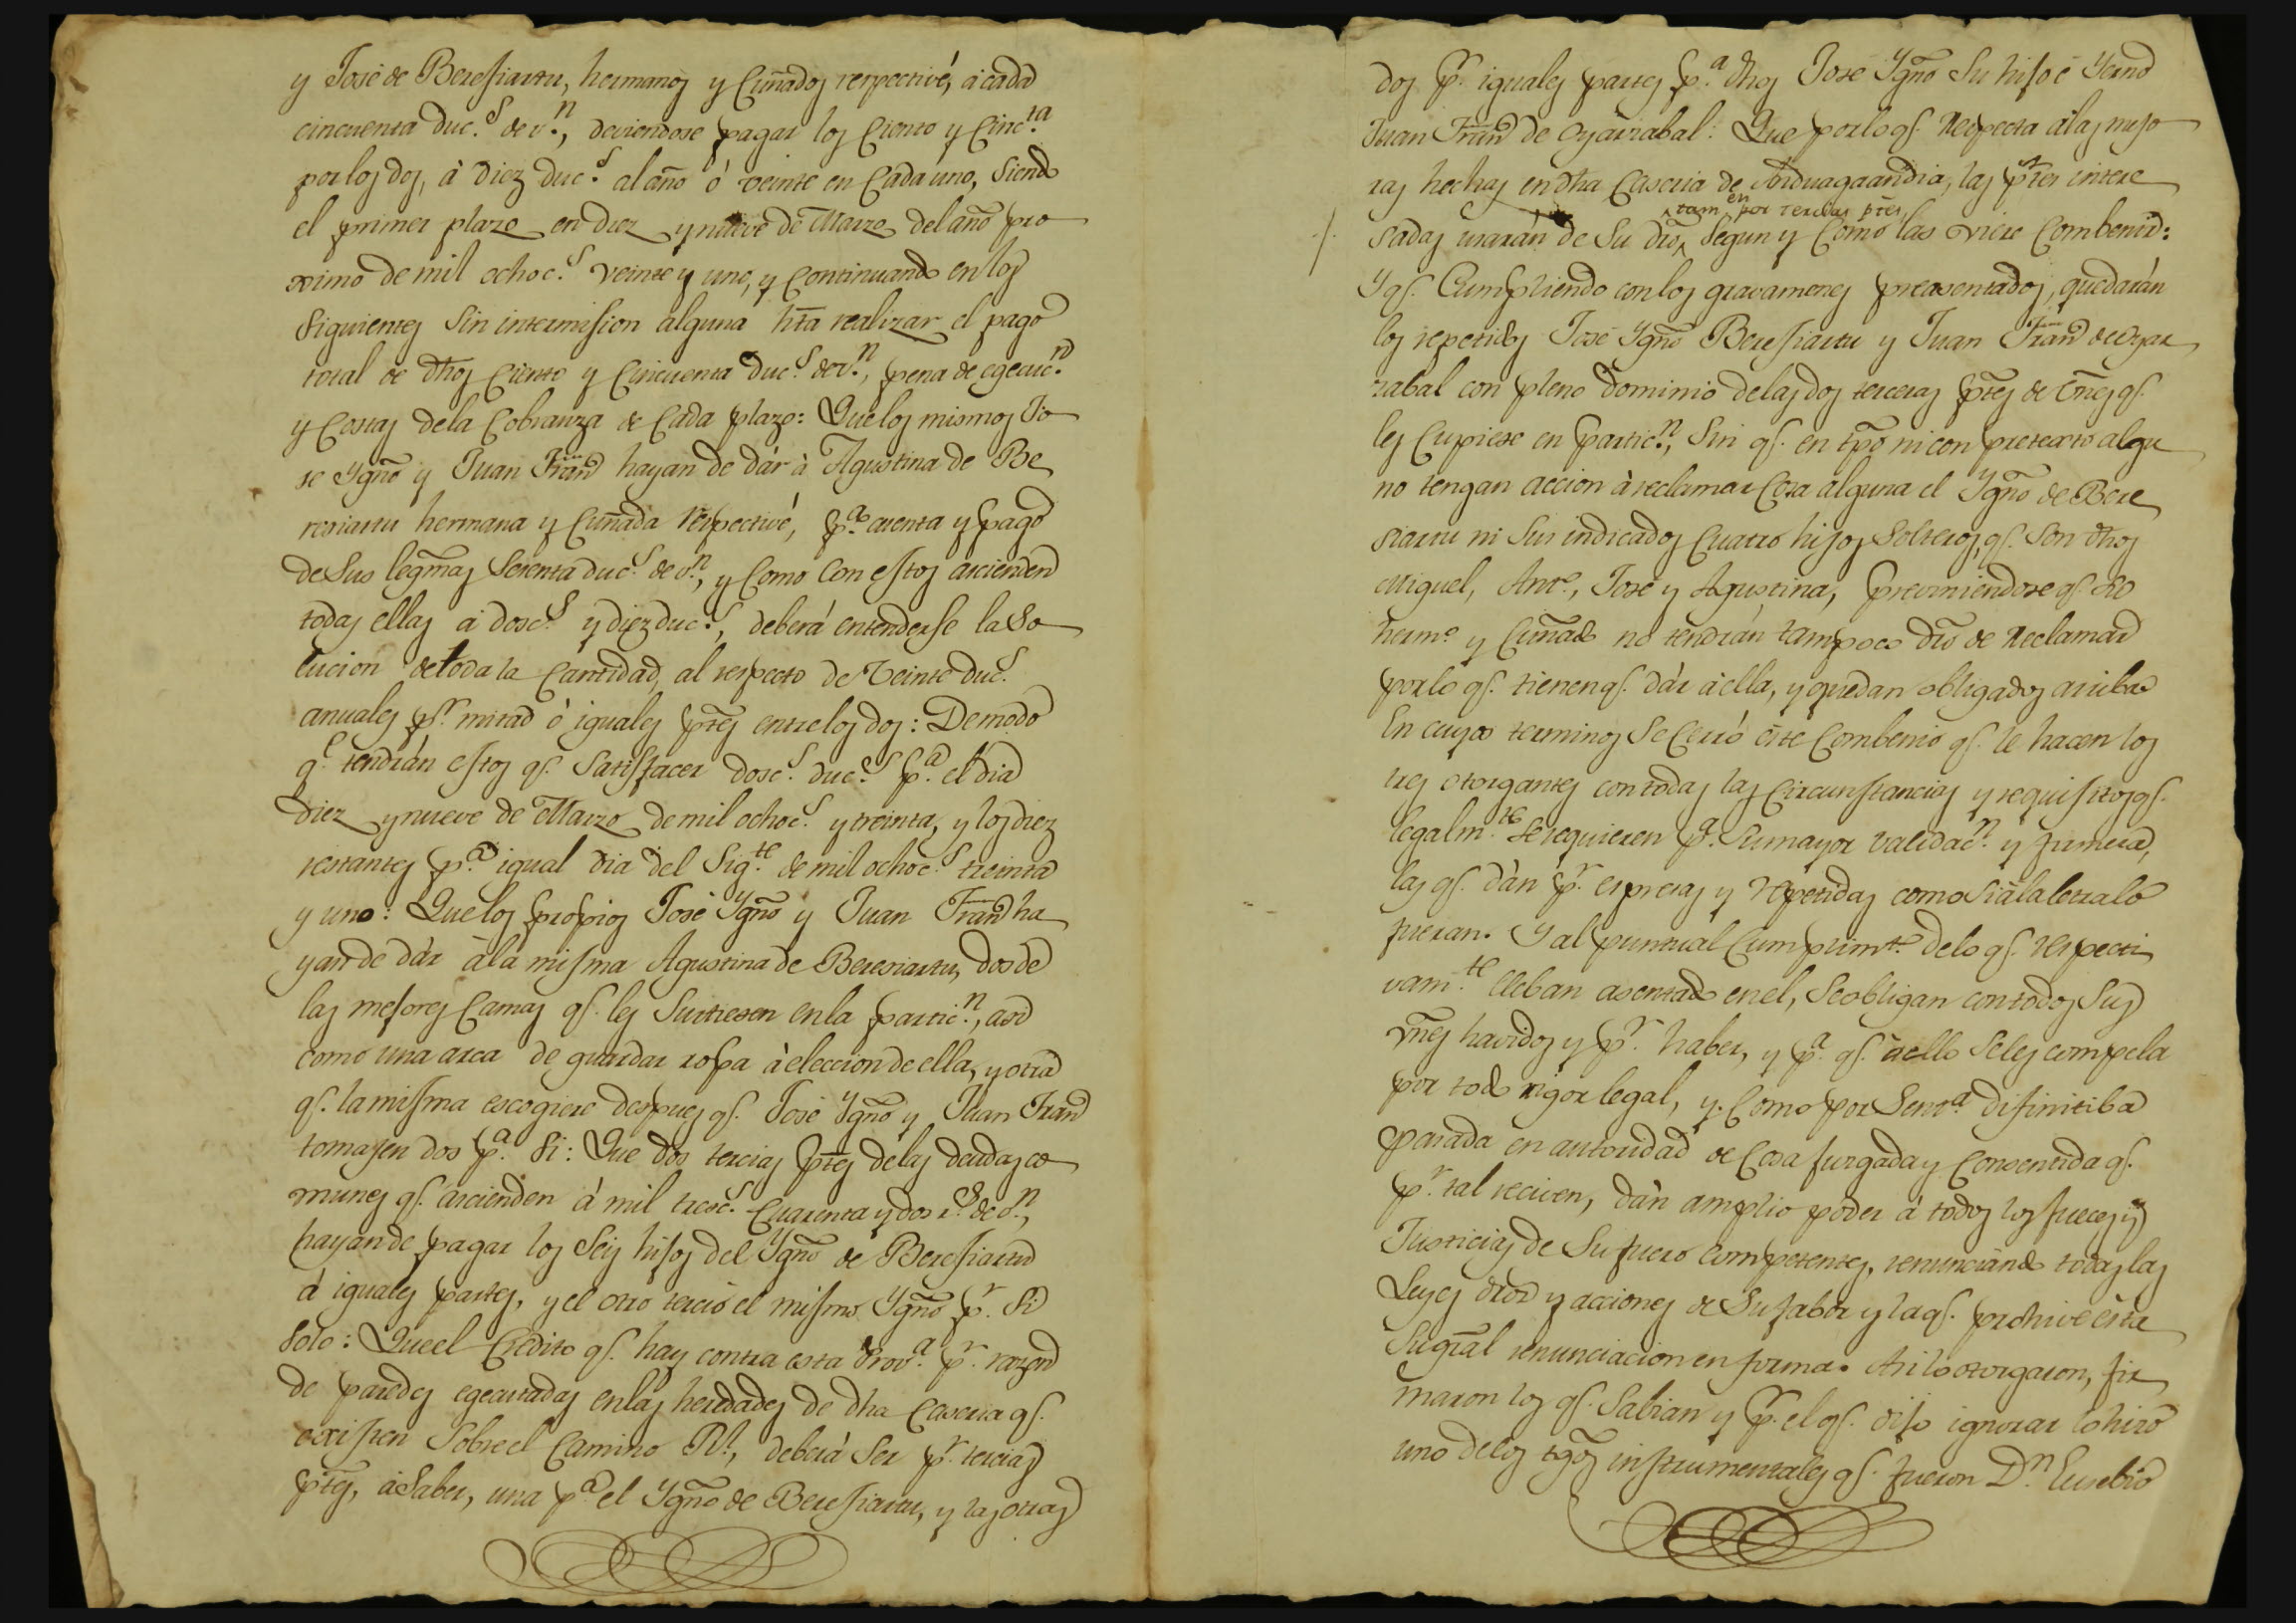 y José de Beresiartu, hermanos y Cuñados respectivé, á cada
cincuenta duc.s de v.n, deviendose pagar los Ciento y Cinc.ta
por los dos, à diez duc.s al año ó veinte en Cada uno, siendo
el primer plazo en diez y nueve de Marzo del año pro
ximo de mil ochoc.s veinte y uno, y Continuando en los
siguientes sin intermision alguna hta realizar el pago
total de dhos Ciento y Cincuenta duc.s de v.n, pena de egecuc.n
y Costas de la Cobranza de Cada plazo: Que los mismos Jo
se Ygno y Juan Fran.co hayan de dár à Agustina de Be
resiartu hermana y Cuñada respectivé, p.a cuenta y pago
de sus legmas sesenta duc.s de v.n, y como con estos ascienden
todas ellas á dosc.s y diez duc.s, deberá entenderse la so
lucion de toda la Cantidad, al respecto de veinte duc.s
anuales p.r mitad ó iguales ptes entre los dos: De modo
q.e tendrán estos q.e satisfacer dosc.s duc.s p.a el dia
diez y nueve de Marzo de mil ochoc.s y treinta, y los diez
restantes p.a igual dia del sig.te de mil ochoc.s treinta
y uno: Que los propios José Ygno y Juan Fran.co ha
yan de dár à la misma Agustina de Beresiartu, dos de
las mejores Camas q.e les surtiesen en la partic.n, asi
como una arca de guardar ropa à eleccion de ella, y otra
q.e la misma escogiere despues q.e José Ygno y Juan Fran.co
tomasen dos p.a si: Que dos tercias ptes de las deudas co
munes q.e ascienden á mil tresc.s Cuarenta y dos r.s de v.n,
hayan de pagar los seis hijos del Ygno de Beresiartu
á iguales partes, y el otro tercio el mismo Ygno p.r si
solo: Que el Credito q.e hay contra esta Prov.a p.r razon
de paredes egecutadas en las heredades de dha Caseria q.e
existen sobre el Camino R.l, deberá ser p.r tercias
ptes, à saber, una p.a el Ygno de Beresiartu, y las otras
dos p.r iguales partes p.a dhos José Ygno su hijo é Yerno
Juan Fran.co de Oyarzabal: Que por lo q.e respecta à las mejo
ras hechas en dha Caseria de Anduagaandia, las ptes intere
tam.en por tercias ptes,
sadas usarán de su dro, segun y como las vice Combenido:
Y q.e Cumpliendo con los gravamenes preasentados, quedarán
los repetidos José Ygno Beresiartu y Juan Fran.co de Oyar
zabal con pleno dominio de las dos terceras ptes de vnes q.e
les Cupiese en partic.n, sin q.e en tpo ni con pretexto algu
no tengan accion à reclamar Cosa alguna el Ygno de Bere
siartu ni sus indicados Cuatro hijos solteros, q.e son dhos
Miguel, Ant.o, José y Agustina, previniendose q.e
herm.o y Cuñado no tendrán tampoco dro de reclamar
por lo q.e tienen q.e dár à ella, y quedan obligados arriba
En cuyos terminos se Cerró este Combenio q.e le hacen los
tres otorgantes con todas las Circunstancias y requisitos q.e
legalm.te se requieren p.a su mayor validac.n y firmeza,
las q.e dàn p.r espresas y repetidas como si à la letra lo
fueran. Y al puntual Cumplim.to de lo q.e respecti
vam.te lleban asentado en el, se obligan con todos sus
vnes havidos y p.r haber, y p.a q.e à ello se les compela
por todo rigor legal, y como por Sent.a difinitiba
pasada en autoridad de Cosa juzgada y Consentida q.e
p.r tal reciven, dàn amplio poder á todos los Jueces y
Justicias de su fuero competentes, renunciando todas las
Leyes dros y acciones de su fabor y la q.e prohive esta
su gral renunciacion en forma. Asi lo otorgaron, fir
maron los q.e sabian y p.r el q.e dijo ignorar lo hizo
uno de los tgos instrumentales q.e fueron D.n Eusebio